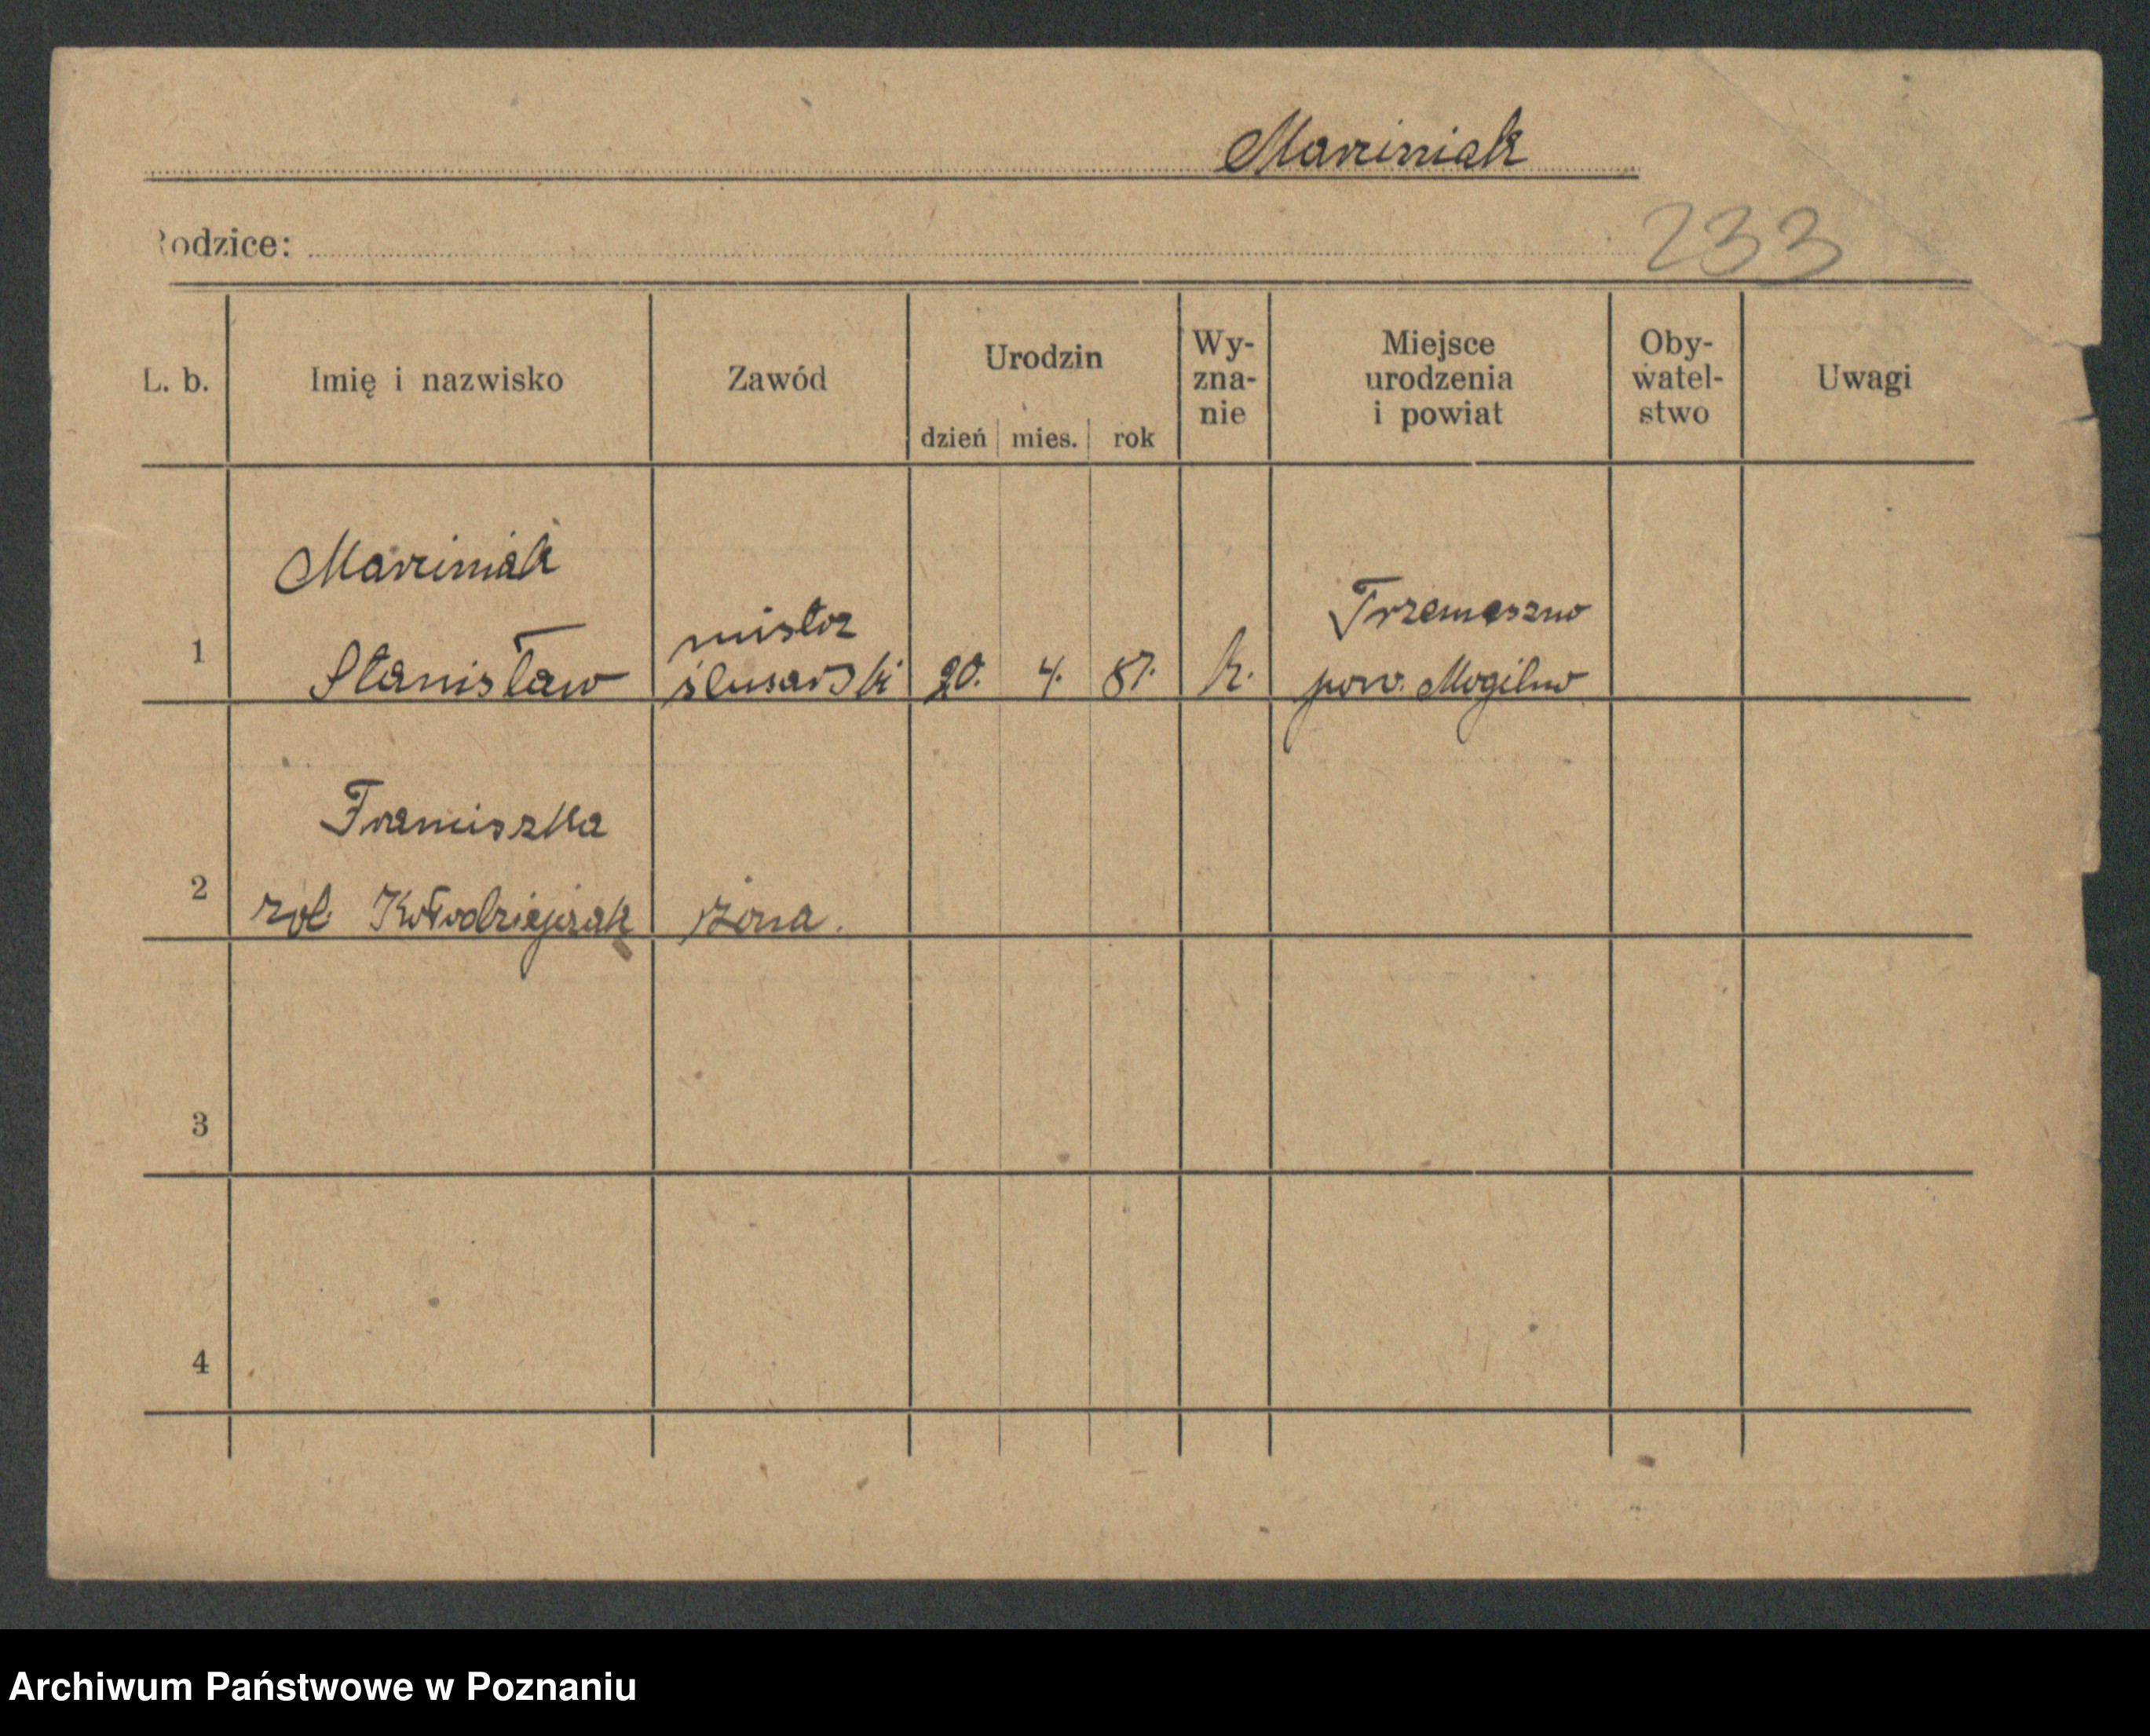 Marciniak
Rodzice:
233
L. b. Imię i nazwisko Zawód Urodzin dzień mies. rok Wy-zna-nie Miejsce urodzenia i powiat Oby-watel-stwo Uwagi
Marciniak
1 Stanisław mistrz ślusarski 20. 4. 87. k. Trzemeszno pow. Mogilno
Franciszka
2 zd. Kołodziejczak żona.
3
4
Archiwum Państwowe w Poznaniu